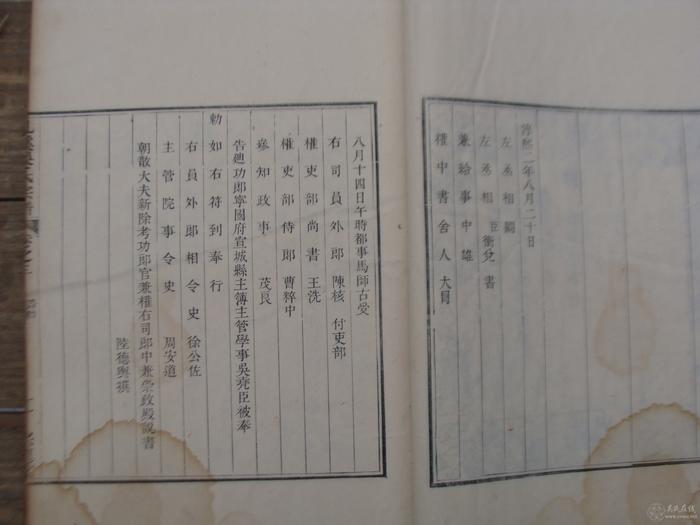 淳熙二年八月二十日
左丞相闕
左丞相 臣衡免書
兼給事中雄
權中書舍人大昌
八月十四日午時都事馬師古受
右司員外郎陳核 付吏部
權吏部尚書王洗
權吏部侍郎曹粹中
參知政事 茂良
告廸功郎寧國府宣城縣主簿主管學事吳堯臣被奉
勅如右符到奉行
右員外郎相令史 徐公佐
主管院事令史 周安道
朝散大夫新除考功郎官兼權右司郎中兼崇政殿說書
陸德輿撰
吳氏在线